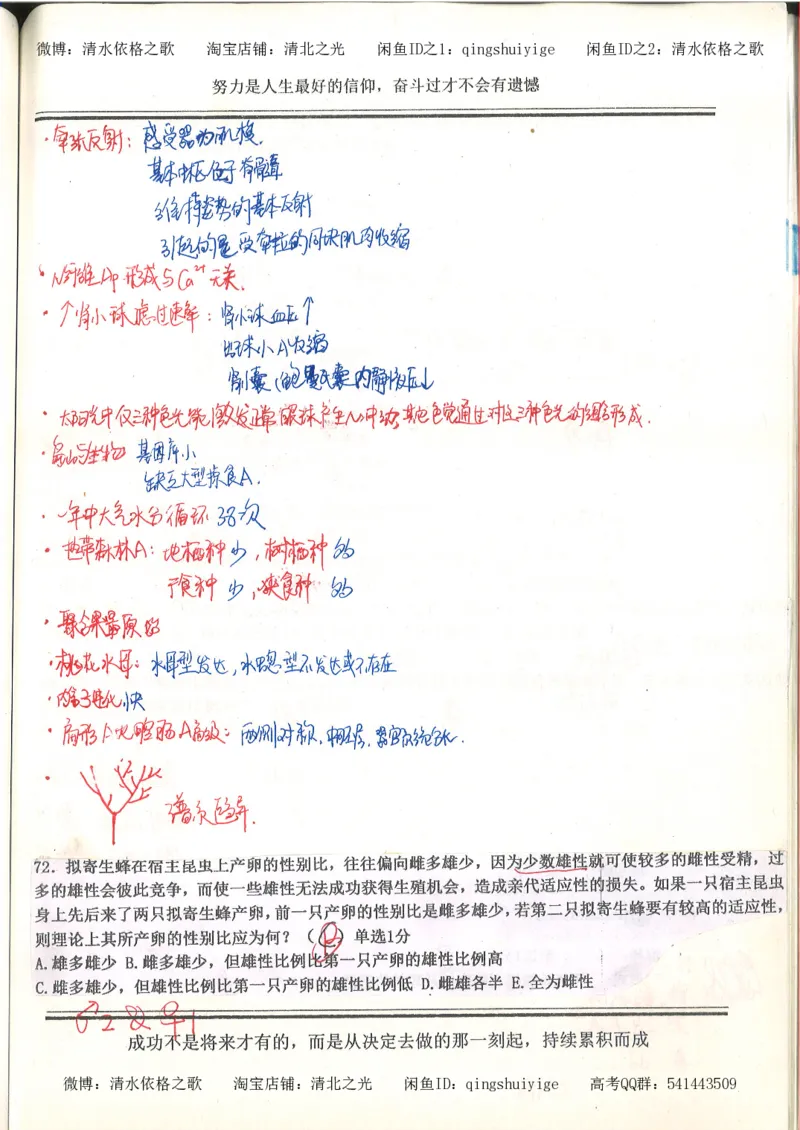 微博：清水依格之歌 淘宝店铺：清北之光 闲鱼ID之1：qingshuiyige 闲鱼ID之2：清水依格之歌
努力是人生最好的信仰，奋斗过才不会有遗憾
·牵张反射：感受器为肌梭.
基本中枢位于脊髓
维持姿势的基本反射
引起的是受牵拉的同块肌肉收缩
·N纤维Ap形成与Ca²⁺无关.
·↑肾小球滤过速率：肾小球血压↑
出球小A收缩
肾囊内静液压↓
·太阳光中仅三种色光能激发正常眼球产生N冲动，其他色觉通过对这三种色光的组合形成.
·岛屿生物 基因库小
缺乏大型掠食A.
·一年中大气水分循环38次
·热带森林A：地栖种少，树栖种多
食种少，狭食种多
·聚合果最原始
·桃花水母：水母型发达，水螅型不发达或不存在
·内含子进化快
·扁形A比腔肠A高级：两侧对称，中胚层，器官系统.
·
趋异.
72. 拟寄生蜂在宿主昆虫上产卵的性别比，往往偏向雌多雄少，因为少数雄性就可使较多的雌性受精，过
多的雄性会彼此竞争，而使一些雄性无法成功获得生殖机会，造成亲代适应性的损失。如果一只宿主昆虫
身上先后来了两只拟寄生蜂产卵，前一只产卵的性别比是雌多雄少，若第二只拟寄生蜂要有较高的适应性，
则理论上其所产卵的性别比应为何？（B）单选1分
A.雄多雌少 B.雌多雄少，但雄性比例比第一只产卵的雄性比例高
C.雌多雄少，但雄性比例比第一只产卵的雄性比例低 D.雌雄各半 E.全为雌性
♂2 & ♀1
成功不是将来才有的，而是从决定去做的那一刻起，持续累积而成
微博：清水依格之歌 淘宝店铺：清北之光 闲鱼ID：qingshuiyige 高考QQ群：541443509